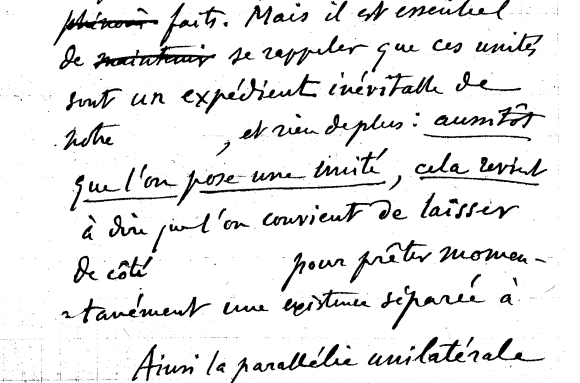 phénom faits. Mais il est essentiel
de maintenir se rappeler que ces unités
sont un expédient inévitable de
notre , et rien de plus : aussitôt
que l'on pose une unité, cela revient
à dire que l'on convient de laisser
de côté pour prêter momen-
-tanément une existence séparée à
Ainsi la parallélie unilatérale